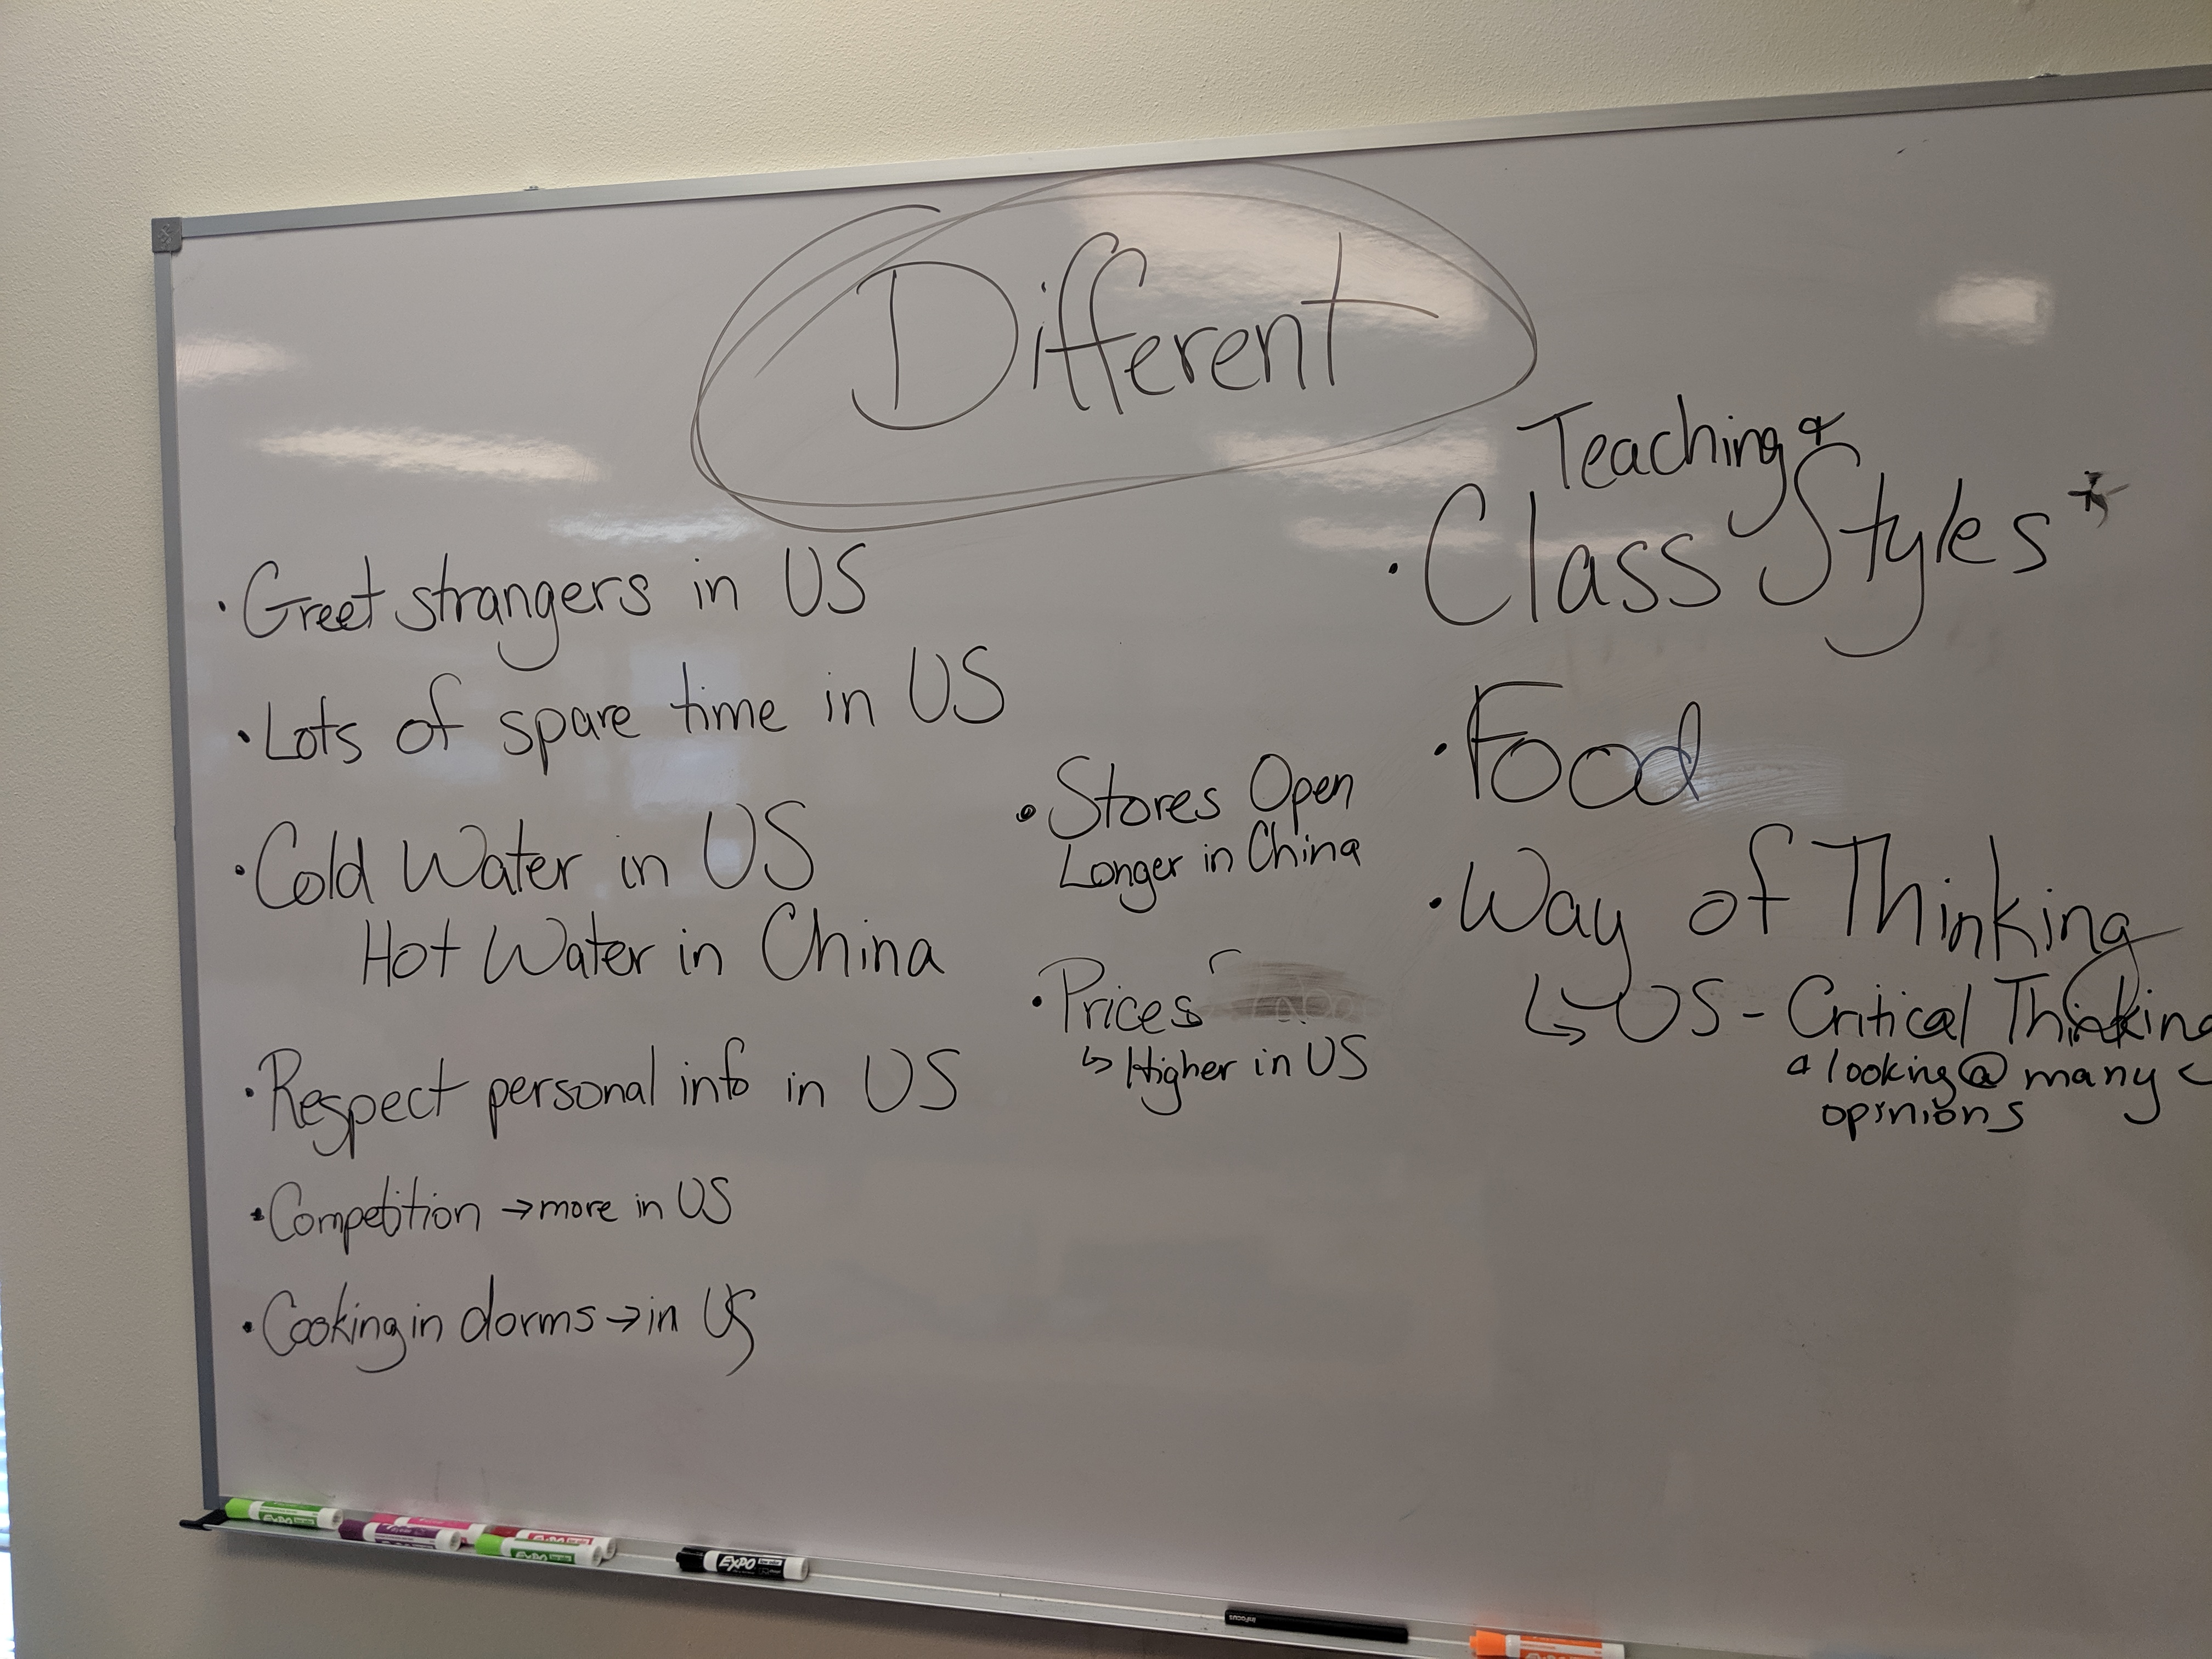 Different
· Greet strangers in US
· Lots of spare time in US
· Cold Water in US
Hot Water in China
· Respect personal info in US
· Competition → more in US
· Cooking in dorms → in US
· Stores Open
Longer in China
· Prices
↳ Higher in US
Teaching &
· Class Styles *
· Food
· Way of Thinking
↳ US - Critical Thinking
& looking @ many
opinions
EXPO
EXPO
EXPO
EXPO
InFocus